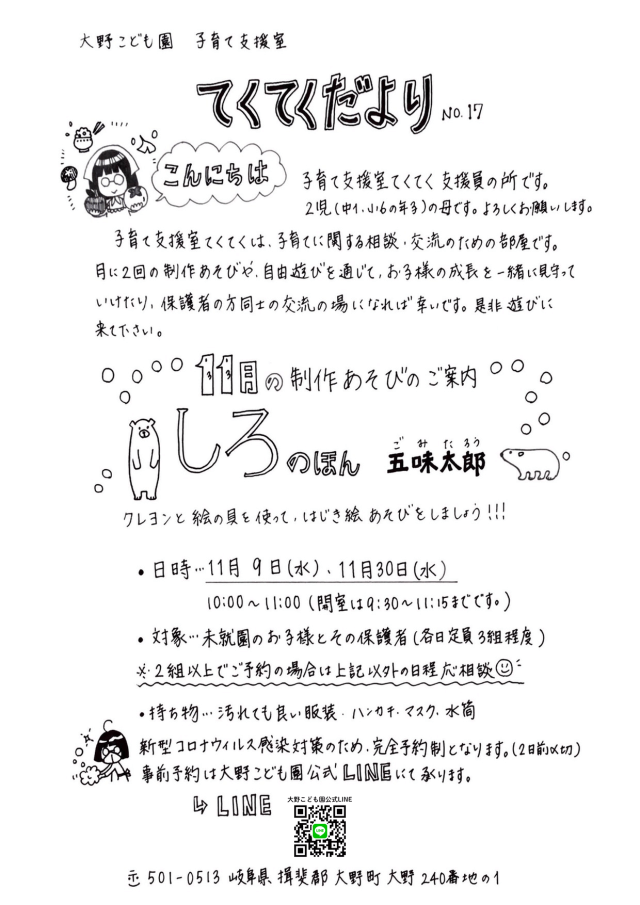 大野こども園 子育て支援室
てくてくだより NO.17
こんにちは
子育て支援室てくてく 支援員の所です。
2児(中1、小6の年子)の母です。よろしくお願いします。
子育て支援室てくてくは、子育てに関する相談・交流のための部屋です。
月に2回の制作あそびや、自由遊びを通じて、お子様の成長を一緒に見守って
いけたり、保護者の方同士の交流の場になれば幸いです。是非遊びに
来て下さい。
11月の制作あそびのご案内
しろのほん 五味太郎
ごみたろう
クレヨンと絵の具を使って、はじき絵あそびをしましょう!!!
・日時…11月9日(水)、11月30日(水)
10:00〜11:00(開室は9:30〜11:15までです。)
・対象…未就園のお子様とその保護者(各日定員3組程度)
※2組以上でご予約の場合は上記以外の日程応相談
・持ち物…汚れても良い服装・ハンカチ・マスク、水筒
新型コロナウィルス感染対策のため、完全予約制となります。(2日前〆切)
事前予約は大野こども園公式LINEにて承ります。
↳LINE
大野こども園公式LINE
LINE
〒501-0513 岐阜県 揖斐郡 大野町 大野 240番地の1